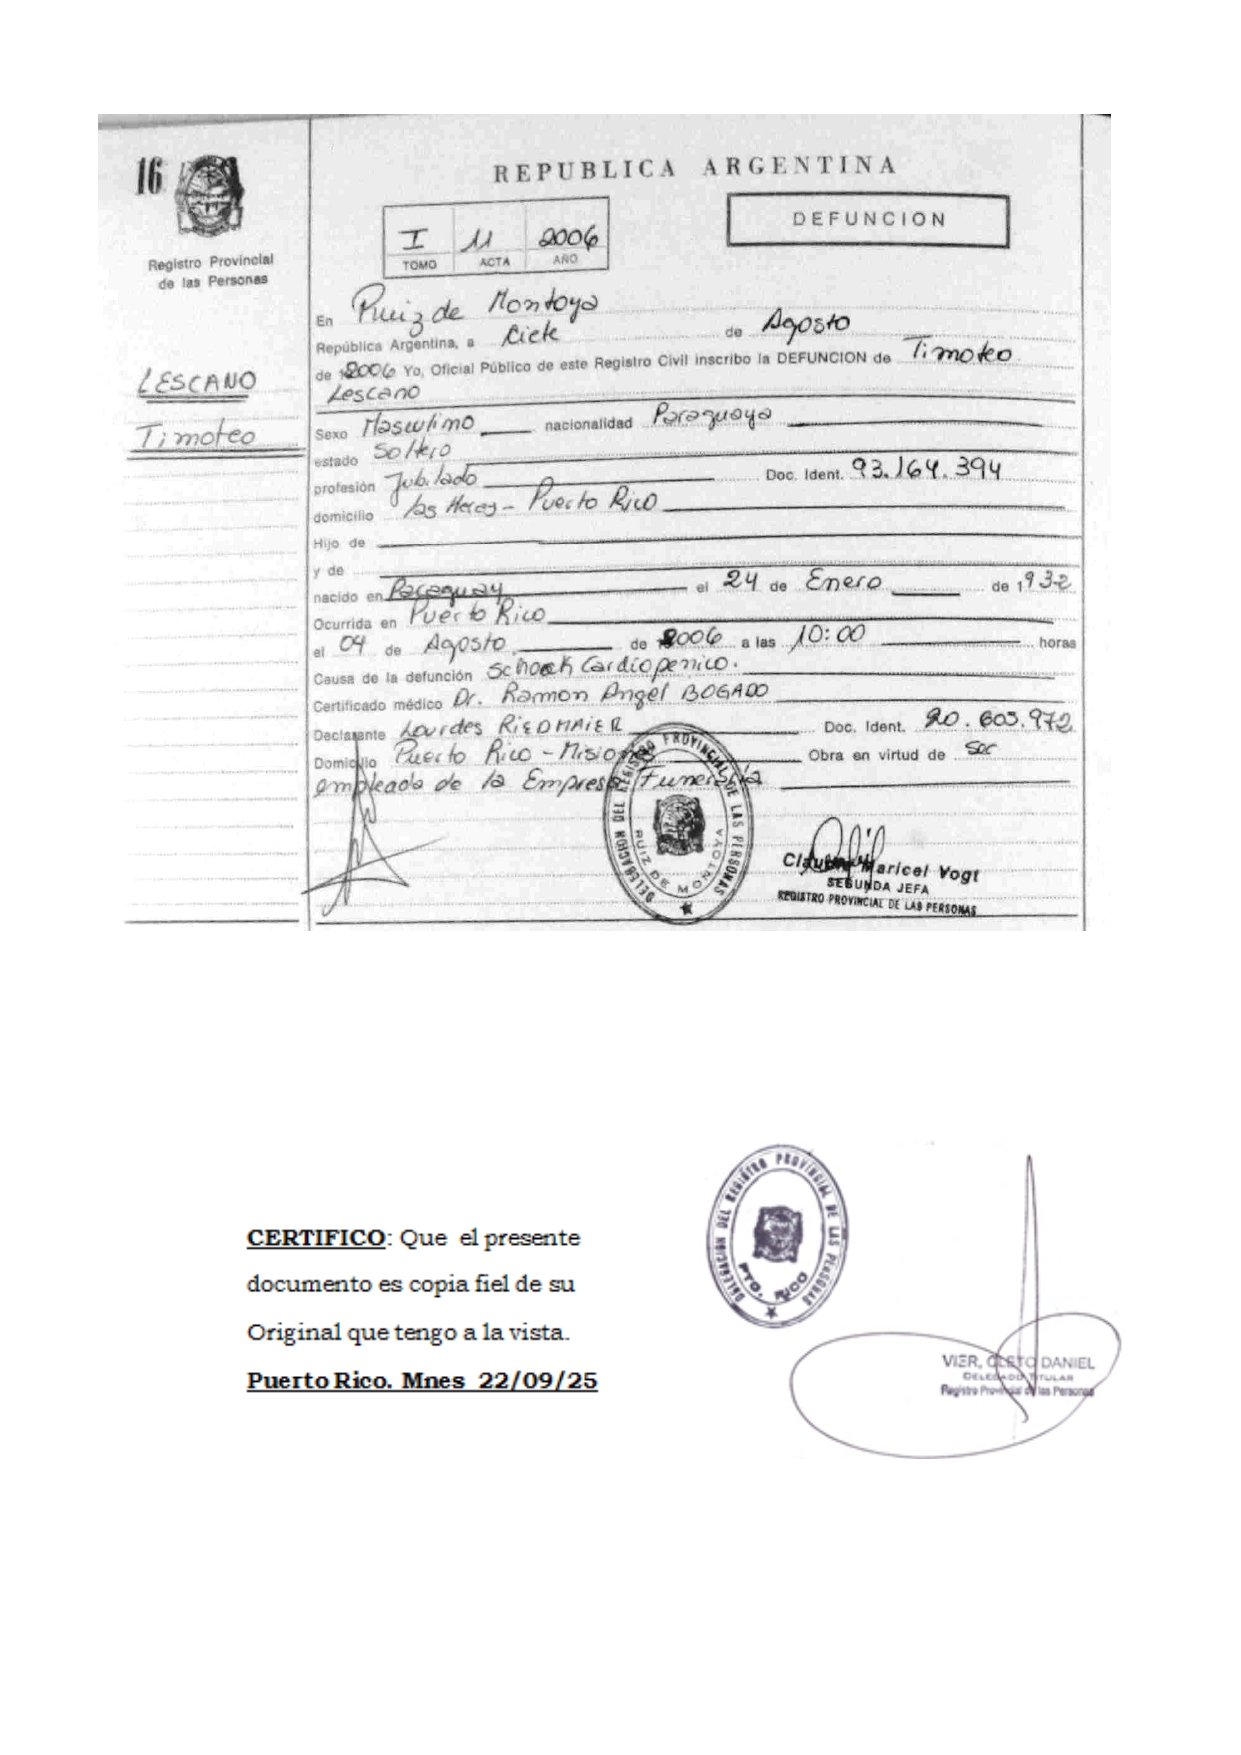 16
Registro Provincial
de las Personas
LESCANO
Timoteo
REPUBLICA ARGENTINA
I 11 2006
TOMO ACTA AÑO
DEFUNCION
En Ruiz de Montoya
República Argentina, a Ciete de Agosto
de 2006 Yo, Oficial Público de este Registro Civil inscribo la DEFUNCION de Timoteo
Lescano
Sexo Masculino nacionalidad Paraguaya
estado Soltero
profesión Jubilado Doc. Ident. 93.164.394
domicilio las Heras - Puerto Rico
Hijo de
y de
nacido en Paraguay el 24 de Enero de 1932
Ocurrida en Puerto Rico
el 04 de Agosto de 2006 a las 10:00 horas
Causa de la defunción Schock Cardiopenico.
Certificado médico Dr. Ramon Angel BOGADO
Declarante Lourdes RIEDMAIER Doc. Ident. 20.603.972
Domicilio Puerto Rico - Misiones Obra en virtud de Ser
empleada de la Empresa Funeraria
DELEGACION DEL REGISTRO PROVINCIAL DE LAS PERSONAS
RUIZ DE MONTOYA
Maricel Vogt
SEGUNDA JEFA
REGISTRO PROVINCIAL DE LAS PERSONAS
CERTIFICO: Que el presente
documento es copia fiel de su
Original que tengo a la vista.
Puerto Rico. Mnes 22/09/25
DELEGACION DEL REGISTRO PROVINCIAL DE LAS PERSONAS
PTO. RICO
VIER, CLETO DANIEL
DELEGADO TITULAR
Registro Provincial de las Personas